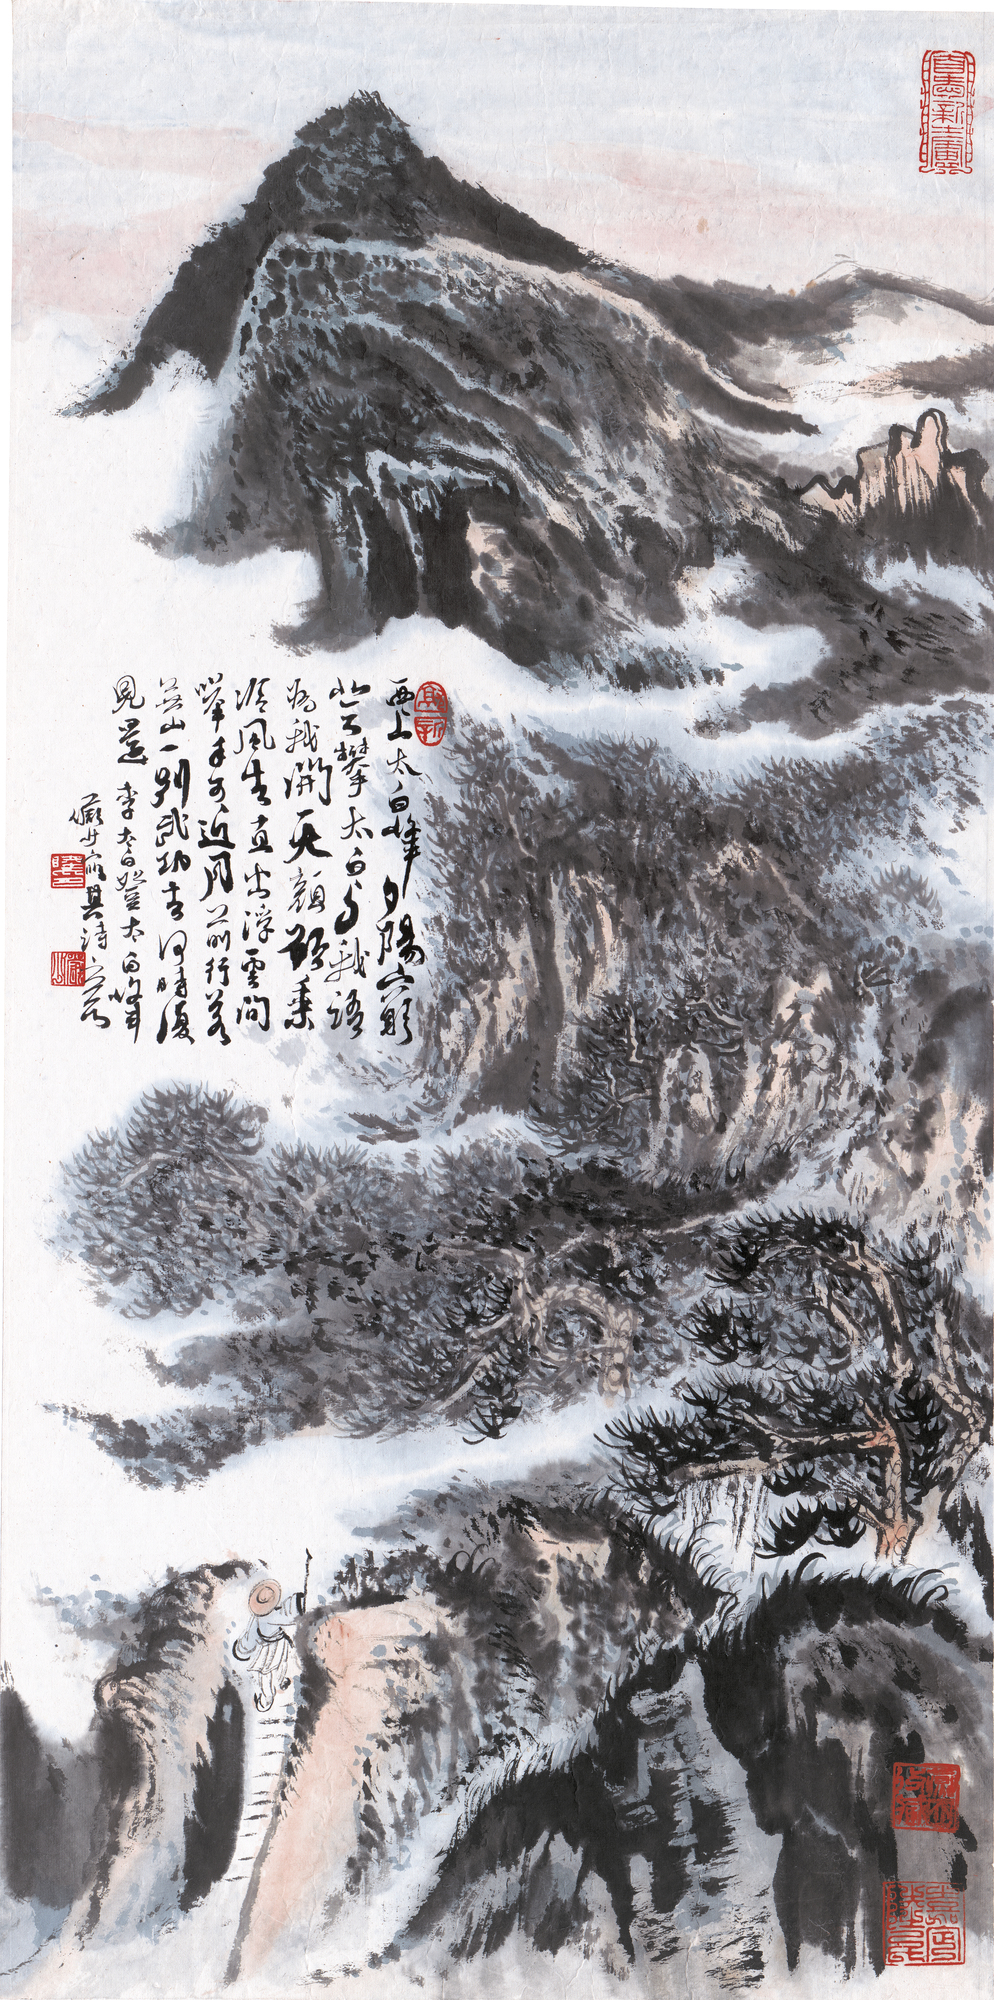 西上太白峰夕陽窮
登攀太白与我語
為我開天顏願乘
泠風去直出浮雲間
舉手可近月前行若
無山一別武功去何時復
見還 李太白登太白峰
儼少寫其詩意